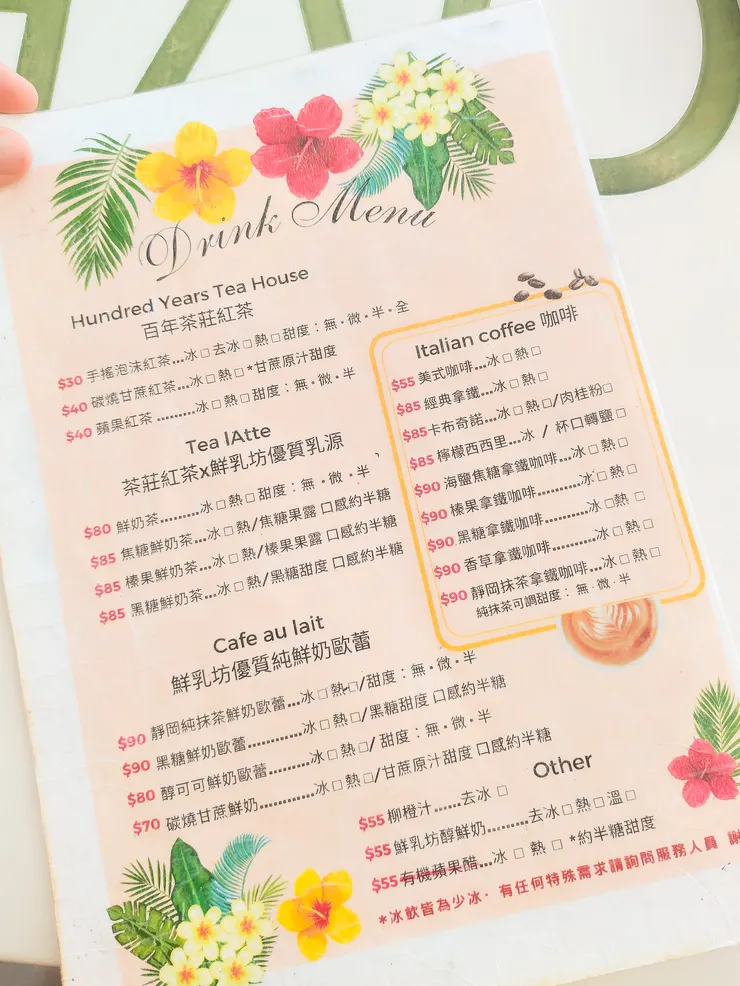 Drink Menu
Hundred Years Tea House
百年茶莊紅茶
$30 手搖泡沫紅茶...冰□去冰□熱□甜度：無·微·半·全
$40 碳燒甘蔗紅茶...冰□熱□*甘蔗原汁甜度
$40 蘋果紅茶 .........冰□熱□甜度：無·微·半
Tea lAtte
茶莊紅茶x鮮乳坊優質乳源
$80 鮮奶茶.........冰□熱□甜度：無·微·半
$85 焦糖鮮奶茶...冰□熱/焦糖果露 口感約半糖
$85 榛果鮮奶茶...冰□熱/榛果果露 口感約半糖
$85 黑糖鮮奶茶...冰□熱/黑糖甜度 口感約半糖
Cafe au lait
鮮乳坊優質純鮮奶歐蕾
$90 靜岡純抹茶鮮奶歐蕾...冰□熱□/甜度：無·微·半
$90 黑糖鮮奶歐蕾............冰□熱□/黑糖甜度 口感約半糖
$80 醇可可鮮奶歐蕾.........冰□熱□/ 甜度：無·微·半
$70 碳燒甘蔗鮮奶............冰□熱□/甘蔗原汁甜度 口感約半糖
Italian coffee 咖啡
$55 美式咖啡...冰□熱□
$85 經典拿鐵...冰□熱□
$85 卡布奇諾...冰□熱□/肉桂粉□
$85 檸檬西西里...冰 / 杯口轉鹽□
$90 海鹽焦糖拿鐵咖啡...冰□熱□
$90 榛果拿鐵咖啡............冰□熱□
$90 黑糖拿鐵咖啡............冰□熱□
$90 香草拿鐵咖啡............冰□熱□
$90 靜岡抹茶拿鐵咖啡...冰□熱□
純抹茶可調甜度： 無·微·半
Other
$55 柳橙汁......去冰 □
$55 鮮乳坊醇鮮奶.........去冰□熱□溫□
$55 有機蘋果醋...冰 □ 熱 □ *約半糖甜度
*冰飲皆為少冰· 有任何特殊需求請詢問服務人員 謝